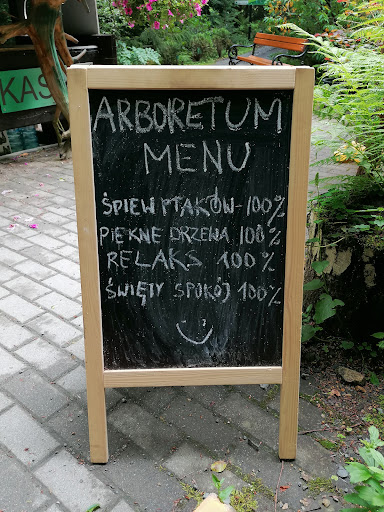 KAS
ARBORETUM
MENU
ŚPIEW PTAKÓW - 100%
PIĘKNE DRZEWA 100%
RELAKS 100%
ŚWIĘTY SPOKÓJ 100%